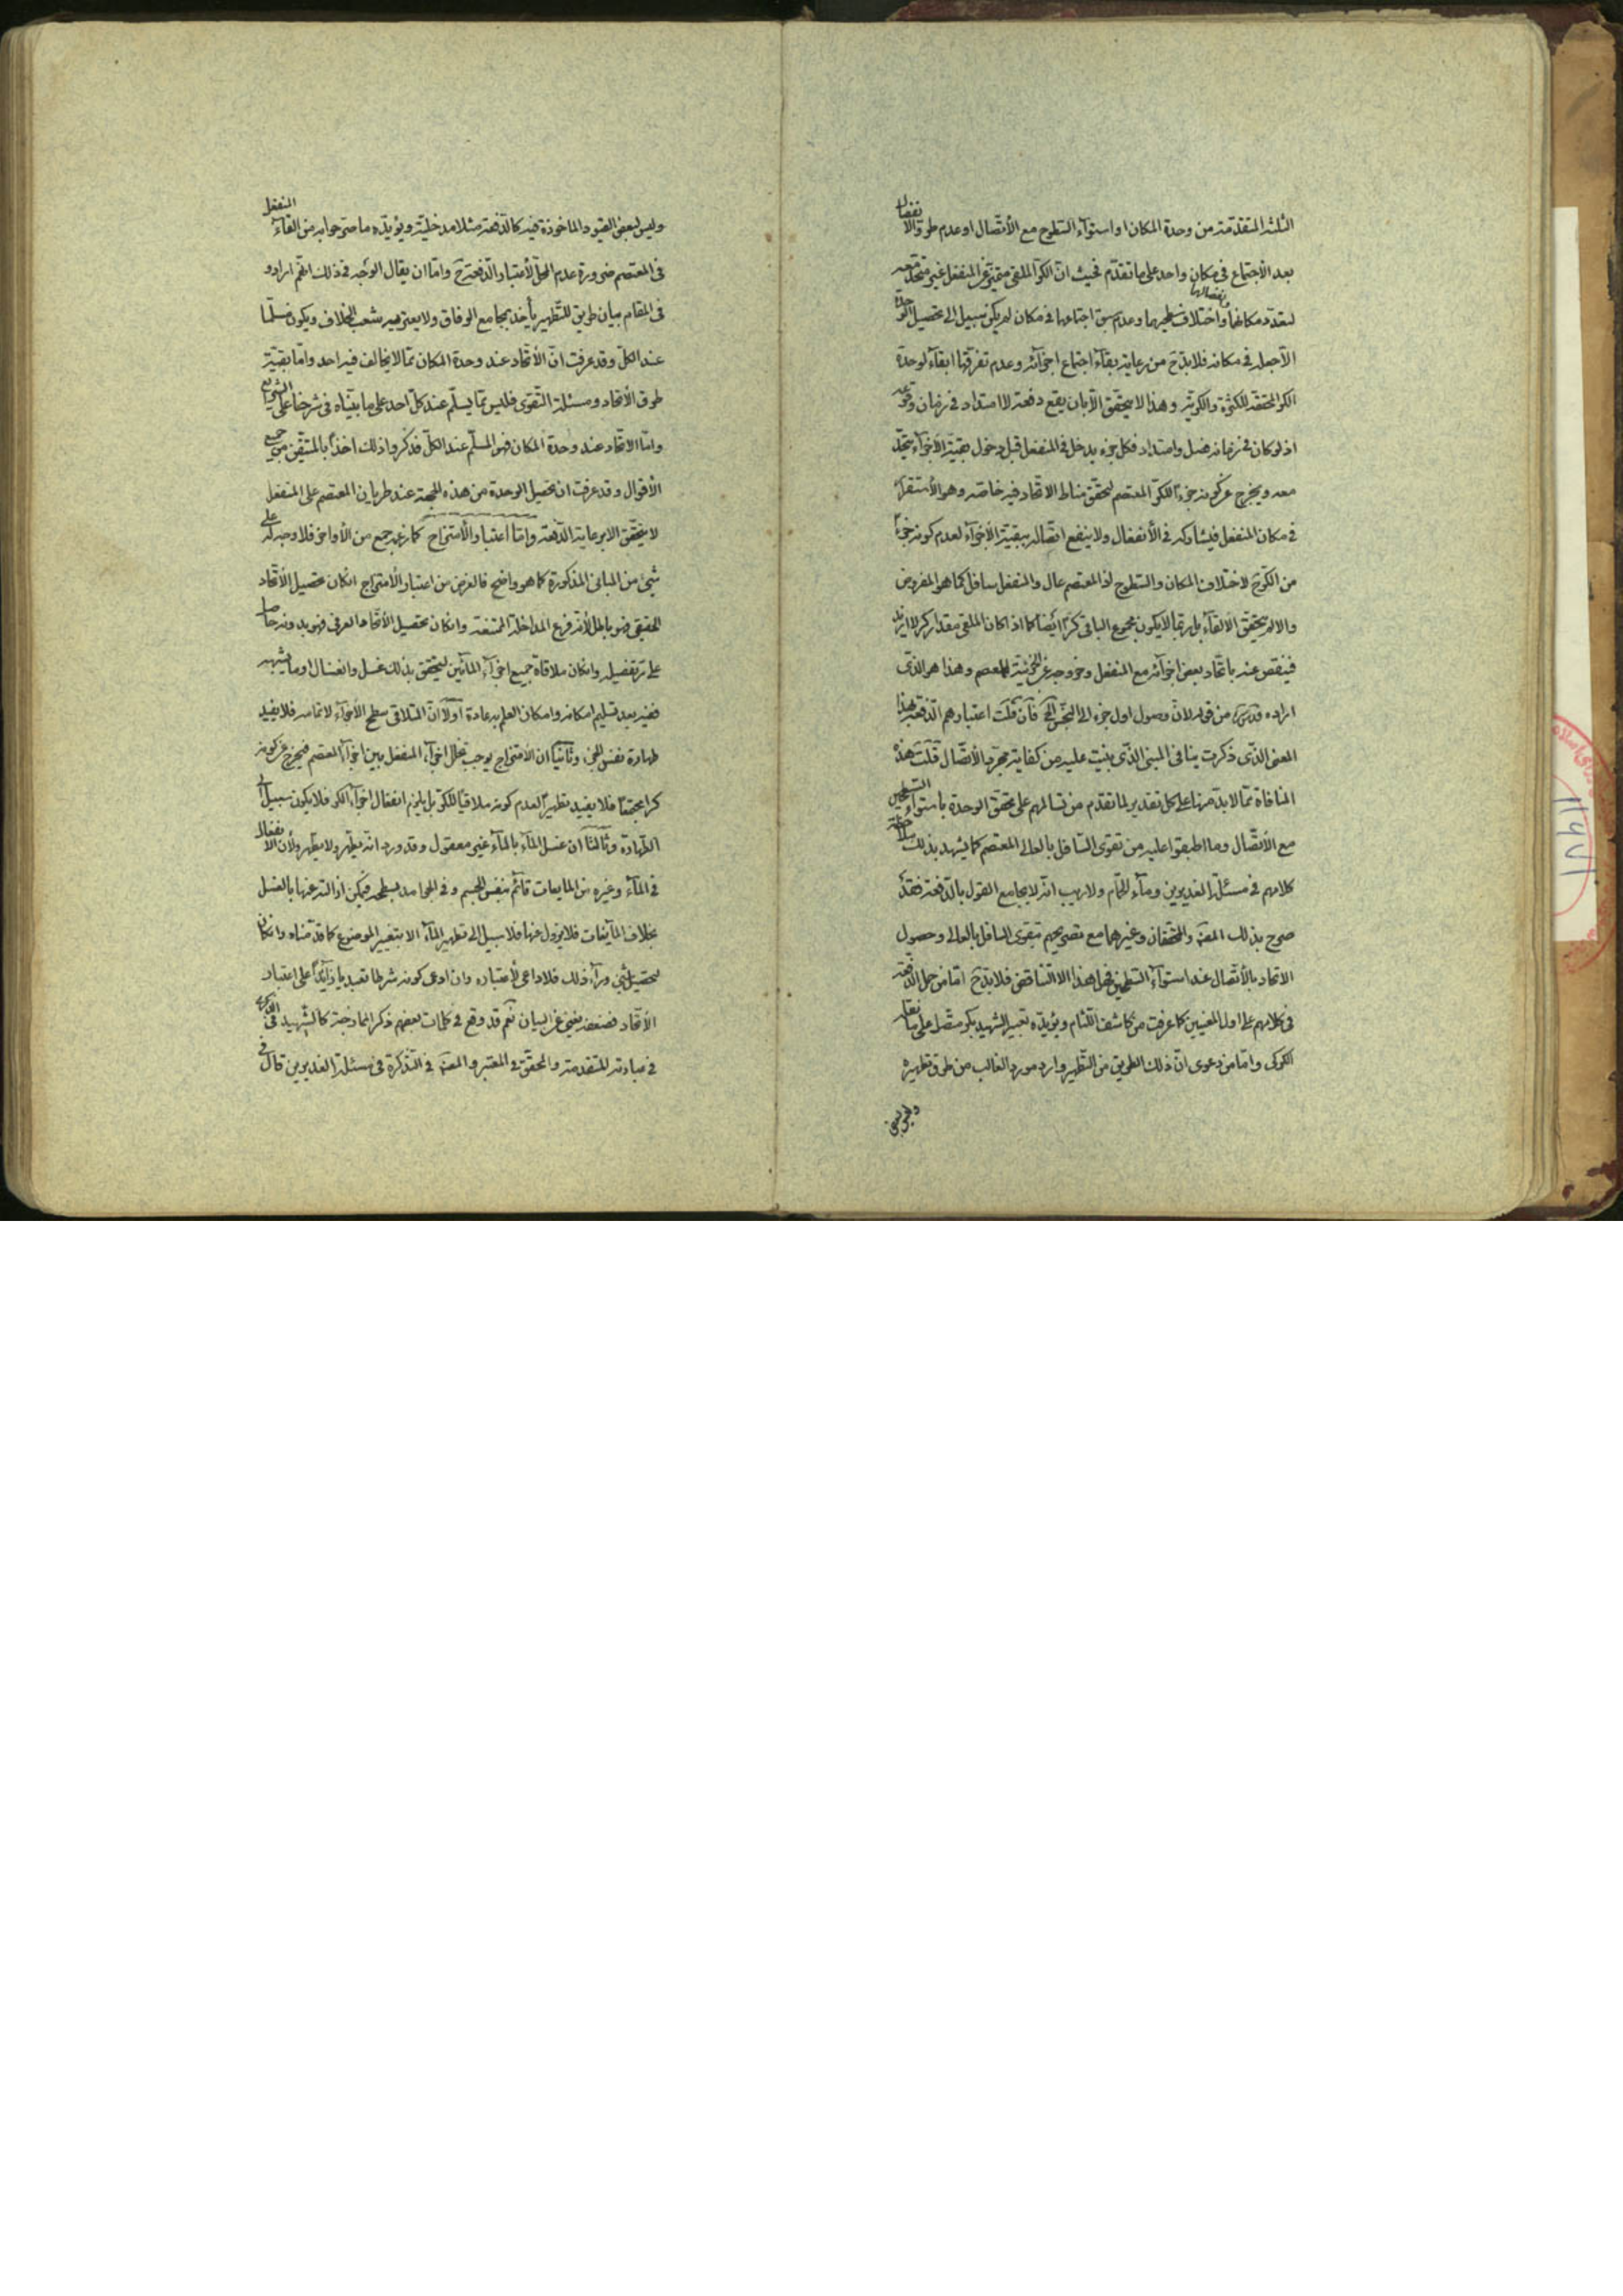 الثلثة المتقدمة من وحدة المكان او استوآء السّطوح مع الأتّصال او عدم طروّ الانفصال
بعد الأجتماع فى مكان واحد على ما تقدّم فحيث انّ الكرّ الملقى متميّز عن المنفعل غير متّحد معه
لتعدّد مكانهما واختلاف سطحيهما وانفصالهما وعدم سبق اجتماعهما فى مكان لم يكن سبيل الى تحصيل الوحدة
الّا جعله فى مكانه فلا بدّ ح من رعاية بقآء اجتماع اجزآئه وعدم تفرّقها ابقآء لوحدة
الكر المحققة للكثرة والكريّة وهذا لا يتحقق الّا بان يقع دفعة لا امتداد فى زمان وقوعه
اذ لو كان فى زمانه فصل وامتداد فكل جزء يدخل فى المنفعل قبل دخول بقيّة الأجزآء يتّحد
معه ويخرج عن كونه جزءً للكرّ المعتصم لتحقق مناط الاتّحاد فيه خاصّة وهو الأستقرار
فى مكان المنفعل فيشاركه فى الأنفعال ولا ينفع اتّصاله ببقيّة الأجزآء لعدم كونه جزءً
من الكرّ ح لاختلاف المكان والسّطوح اذ المعتصم عال والمنفعل سافل كما هو المفروض
والا لم يتحقق الألقآء بل ربّما لا يكون مجموع الباقى كرّا ايضا كما اذا كان الملقى مقدار كر لا ازيد
فينقص عنه باتّحاد بعض اجزآئه مع المنفعل وخروجه عن الجزئيّة للمعتصم وهذا هو الّذى
اراده قدس سره من قوله لانّ وصول اول جزء الى النجس الخ فان قلت اعتبارهم الدّفعة بهذا
المعنى الّذى ذكرت ينافى المبنى الّذى بنيت عليه من كفاية مجرّد الأتّصال قلت هذه
المنافاة ممّا لا بدّ منها على كل تقدير لما تقدم من تسالمهم على تحقق الوحدة باستوآء السّطحين
مع الأتّصال وما اطبقوا عليه من تقوى السّافل بالعالى المعتصم كما يشهد بذلك ملاحظة
كلامهم فى مسئلة الغديرين ومآء الحمّام ولا ريب انّه لا يجامع القول بالدّفعة فقد
صرح بذلك المصنّف والمحققان وغيرهما مع تصريحهم بتقوى السافل بالعالى وحصول
الاتحاد بالأتّصال عند استوآء السّطحين فهل هذا الا التّناقض فلا بدّ ح امّا من حمل الدّفعة
فى كلامهم على اول المعنيين كما عرفت من كاشف اللّثام ويؤيّده تعبير الشهيد بكر متّصل على ما نقله
الكركى وامّا من دعوى انّ ذلك الطريق من التّطهير وارد مورد الغالب من طرق تطهيره
وليس لبعض القيود المأخوذة فيه كالدّفعة مثلا مدخليّة ويؤيّده ما صرّحوا به من القآء المنفعل
فى المعتصم ضرورة عدم المحلّ لأعتبار الدّفعة ح وامّا ان يقال الوجه فى ذلك انّهم ارادوا
فى المقام بيان طريق للتّطهير يأخذ بمجامع الوفاق ولا يعتريه شعب الخلاف ويكون مسلّما
عند الكلّ وقد عرفت انّ الأتّحاد عند وحدة المكان ممّا لا يخالف فيه احد وامّا بقيّة
طرق الأتّحاد ومسئلة التّقوى فليس ممّا يسلّم عند كلّ احد على ما بيّناه فى شرحنا على الشرايع
وامّا الاتّحاد عند وحدة المكان فهو المسلّم عند الكلّ فذكروا ذلك اخذاً بالمتيقّن من جميع
الأقوال وقد عرفت ان تحصيل الوحدة من هذه الجهة عند طريان المعتصم على المنفعل
لا يتحقق الا برعاية الدّفعة وامّا اعتبار الأمتزاج كما زعمه جمع من الأواخر فلا وجه له على
شىء من المبانى المذكورة كما هو واضح فالغرض من اعتبار الأمتزاج ان كان تحصيل الأتّحاد
الحقيقى فهو باطل لأنّه فرع المداخلة الممتنعة وان كان تحصيل الأتحاد العرفى فهو بدونه حاصل
على تفصيله وان كان ملاقاة جميع اجزآء المائين ليتحقق بذلك غسل وانغسال او ما يشبهه
ففيه بعد تسليم امكانه وامكان العلم به عادة اولا انّ المتلاقى سطح الأجزآء لا تمامه فلا يفيد
طهارة نفس الجزء وثانياً ان الأمتزاج يوجب تخلل اجزآء المنفعل بين اجزآء المعتصم فيخرج عن كونه
كرا مجتمعاً فلا يفيد تطهيراً لعدم كونه ملاقياً للكرّ بل يلزم انفعال اجزآء الكر فلا يكون سبيل الى
الطّهارة وثالثاً ان غسل المآء بالمآء غير معقول وقد ورد انّه يطهّر ولا يطهّر ولأن الانفعال
فى المآء وغيره من المايعات قائم بنفس الجسم وفى الجوامد بسطحه فيمكن ازالته عنها بالغسل
بخلاف المآيعات فلا يزول عنها فلا سبيل الى تطهير المآء الا بتغيير الموضوع كما قدّمناه وان كان
لتحصيل شىء ورآء ذلك فلا داعى لأعتباره وان ادعى كونه شرطا تعبديا زآئداً على اعتبار
الأتّحاد فضعفه يغنى عن البيان نعم قد وقع فى كلمات بعضهم ذكر الممازجة كالشّهيد فى الذكرى
فى عبارته المتقدمة والمحقّق فى المعتبر والمصنّف فى التّذكرة فى مسئلة الغديرين قال فى